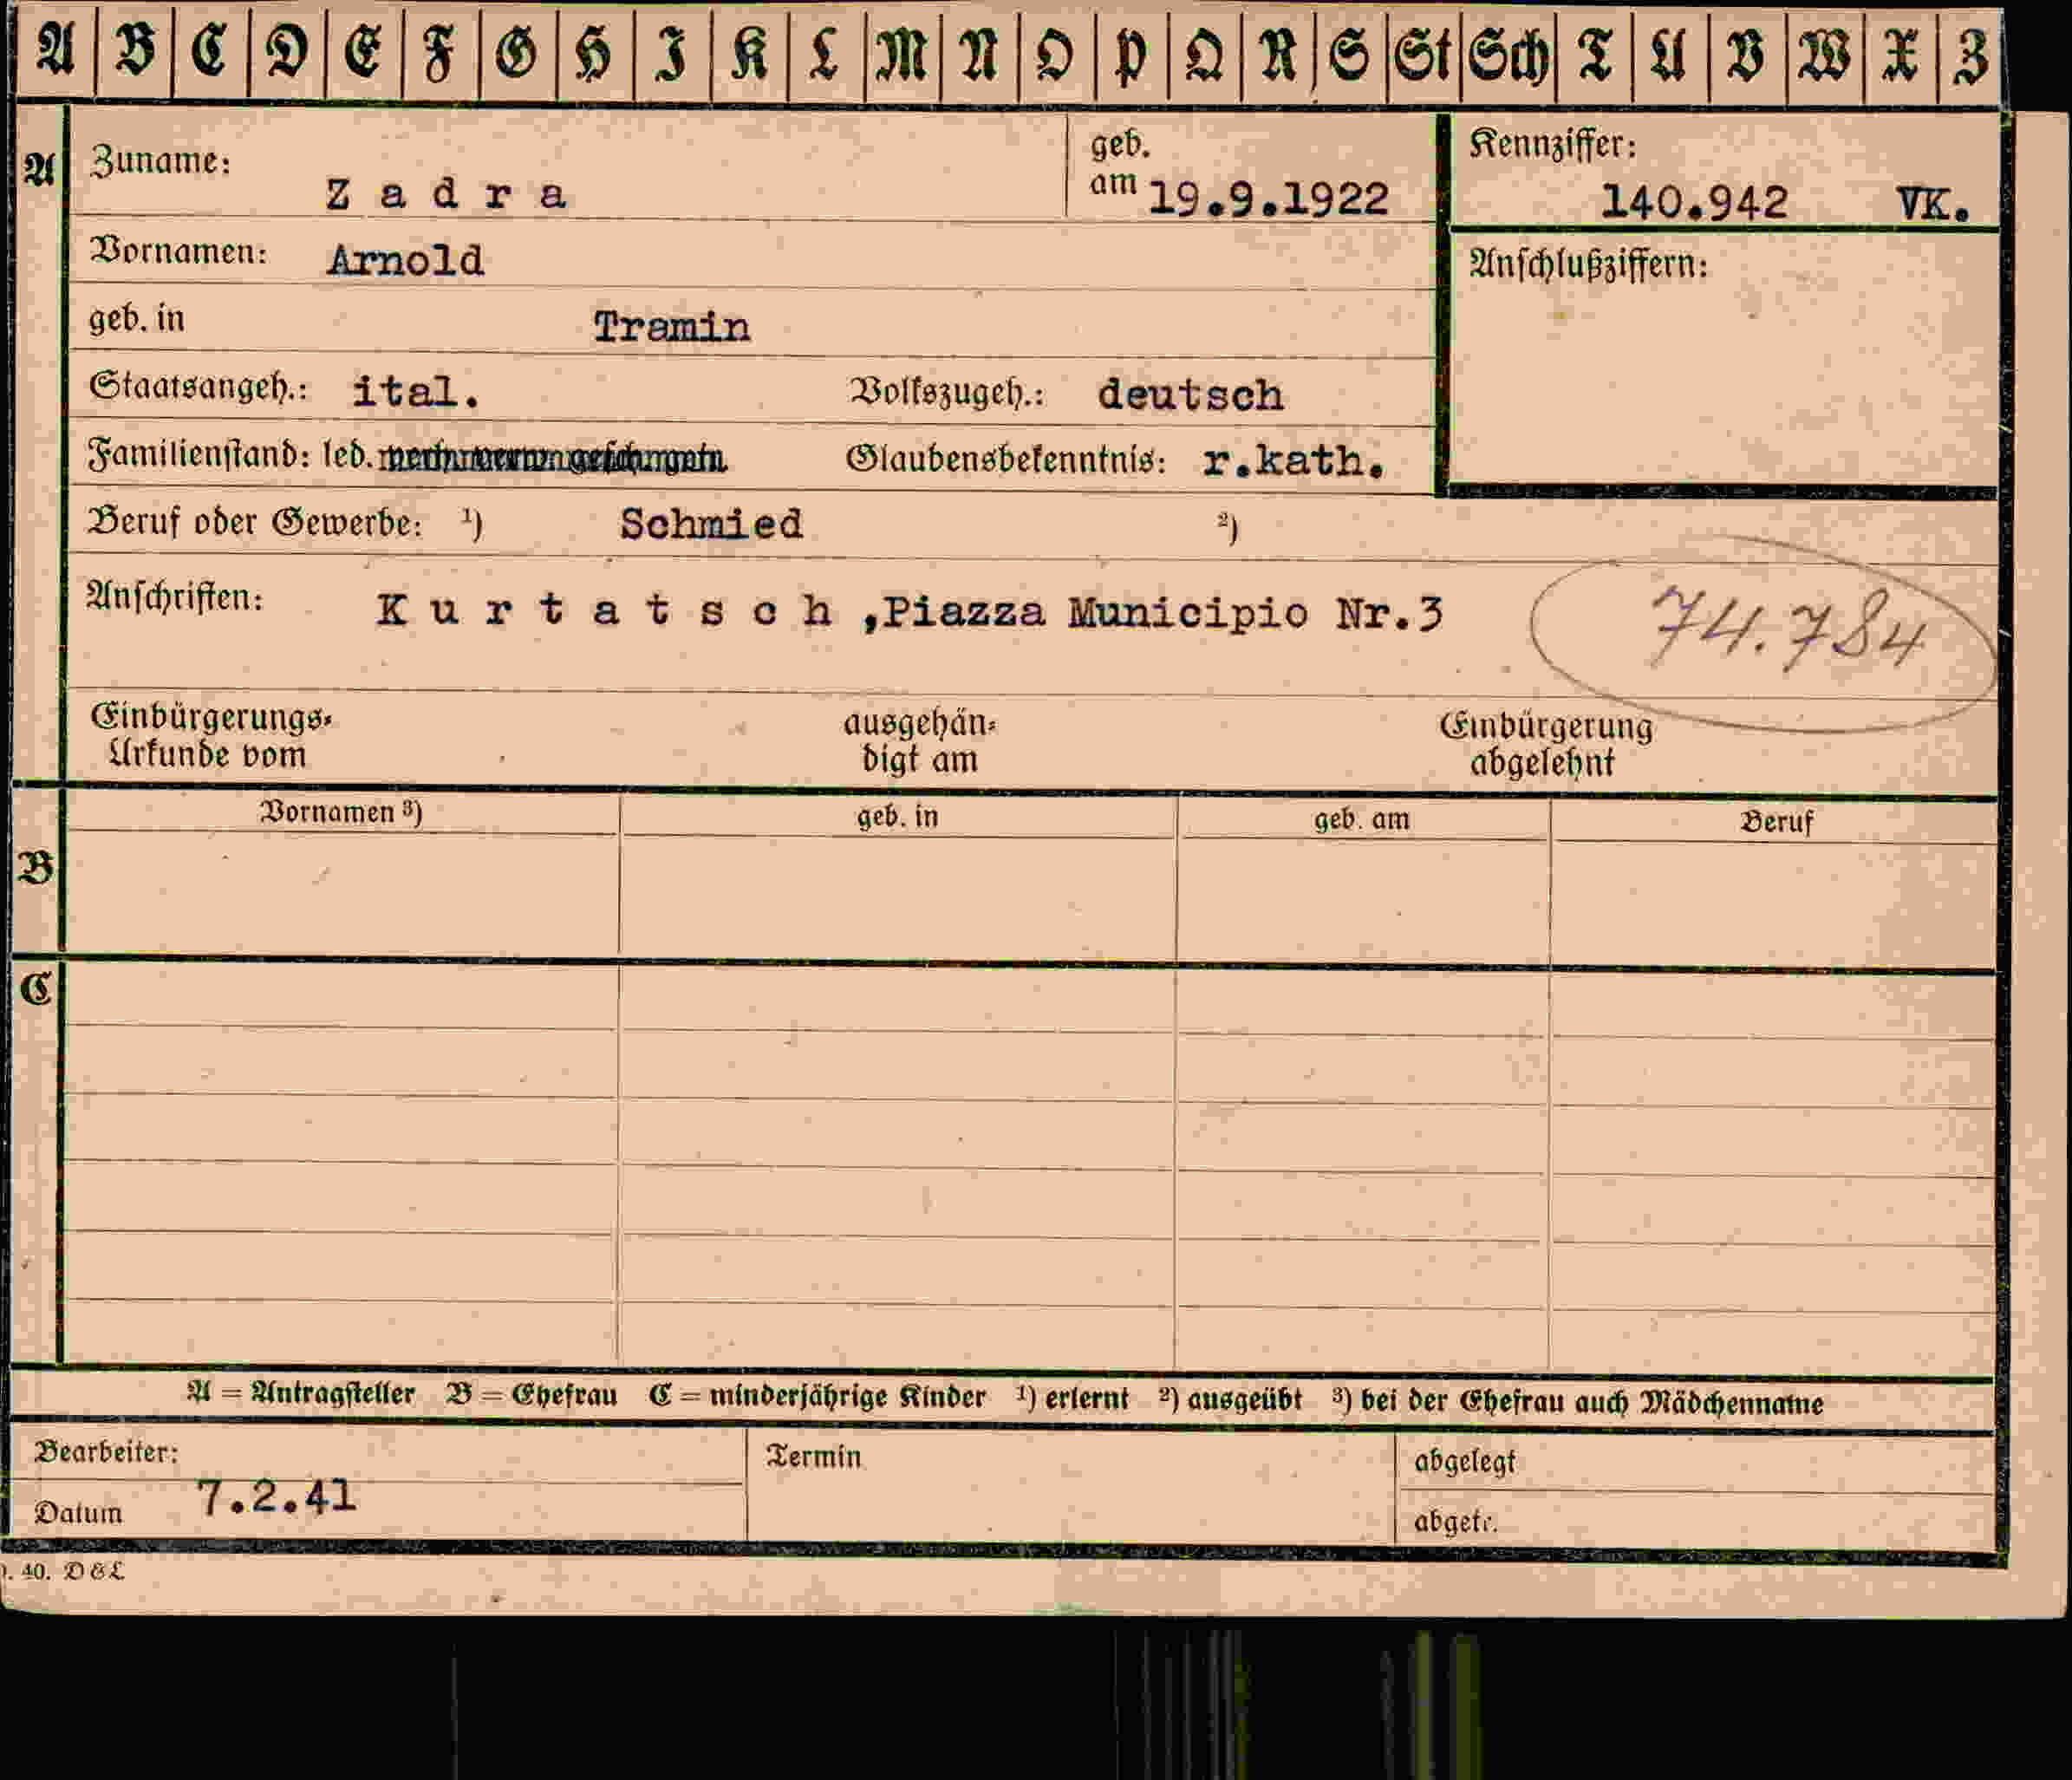 A B C D E F G H I K L M N O P Q R S St Sch T U V W X Z
A
Zuname: Zadra
geb. am 19.9.1922
Kennziffer: 140.942 VK.
Vornamen: Arnold
Anschlußziffern:
geb. in Tramin
Staatsangeh.: ital. Volkszugeh.: deutsch
Familienstand: led. Glaubensbekenntnis: r.kath.
Beruf oder Gewerbe: ¹) Schmied ²)
Anschriften: Kurtatsch,Piazza Municipio Nr.3 74.784
Einbürgerungs- ausgehän- Einbürgerung
Urkunde vom digt am abgelehnt
Vornamen ³) geb. in geb. am Beruf
B
C
A = Antragsteller B = Ehefrau C = minderjährige Kinder ¹) erlernt ²) ausgeübt ³) bei der Ehefrau auch Mädchenname
Bearbeiter: Termin abgelegt
Datum 7.2.41 abgetr.
40. D & L